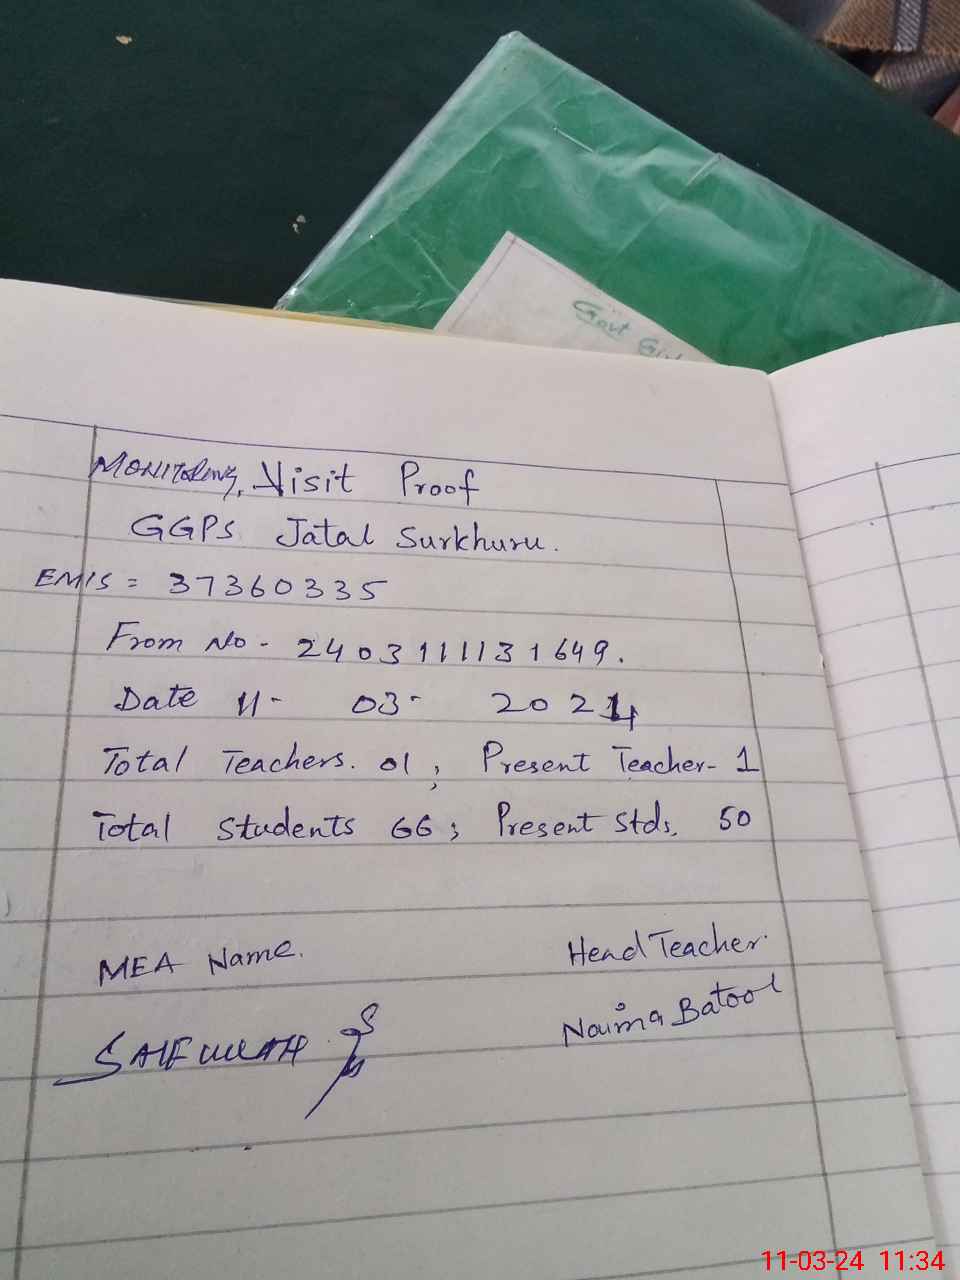 Govt Gir
Monitoring, Visit Proof
GGPS Jatal Surkhuru.
EMIS = 37360335
From No - 2403111131649.
Date 11- 03- 2024
Total Teachers. 01 ; Present Teacher- 1
Total Students 66 ; Present Stds, 50
MEA Name. Head Teacher.
SAIFULLAH Naima Batool
11-03-24 11:34